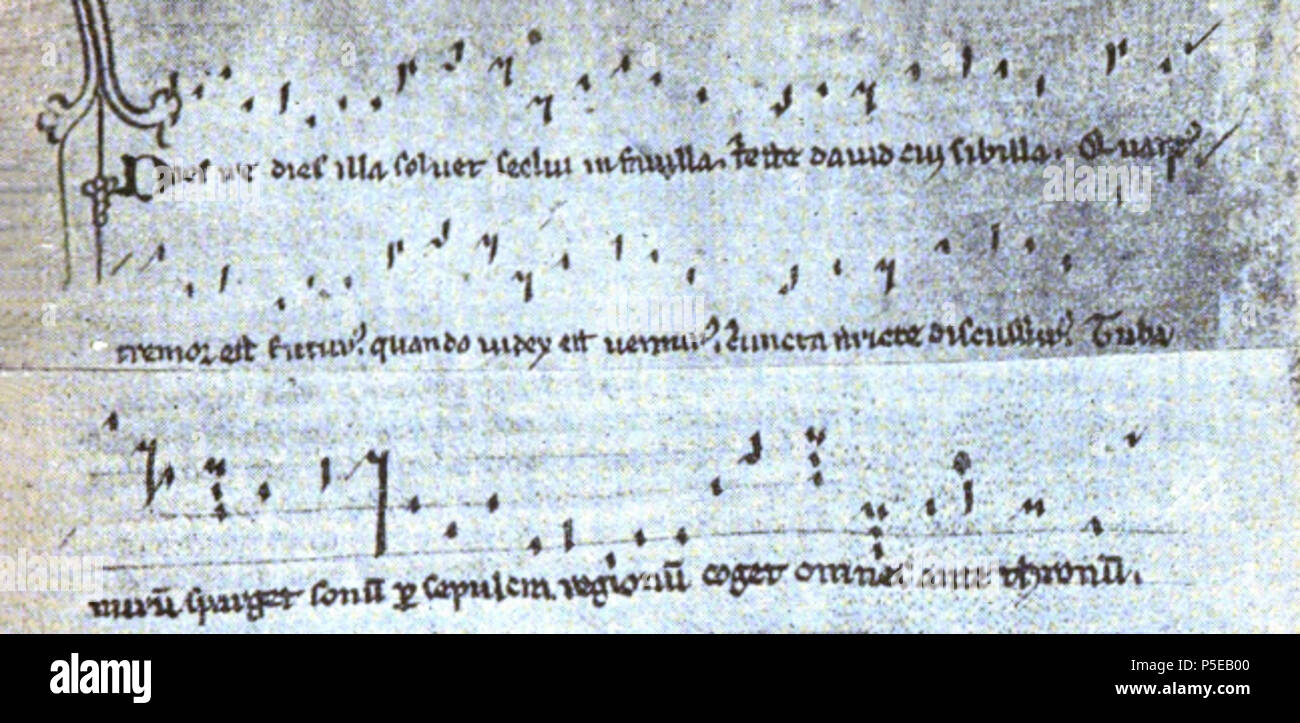 Dies ire dies illa soluet seclū in fauilla. teste dauid cū sibilla. Quant⁹
tremor est futur⁹. quando uidex est uentur⁹. cuncta stricte discussur⁹. Tuba
mirū sparget sonū ꝑ sepulcra regionū coget omnes ante thronū.
alamy
alamy
Image ID: P5EB00
www.alamy.com